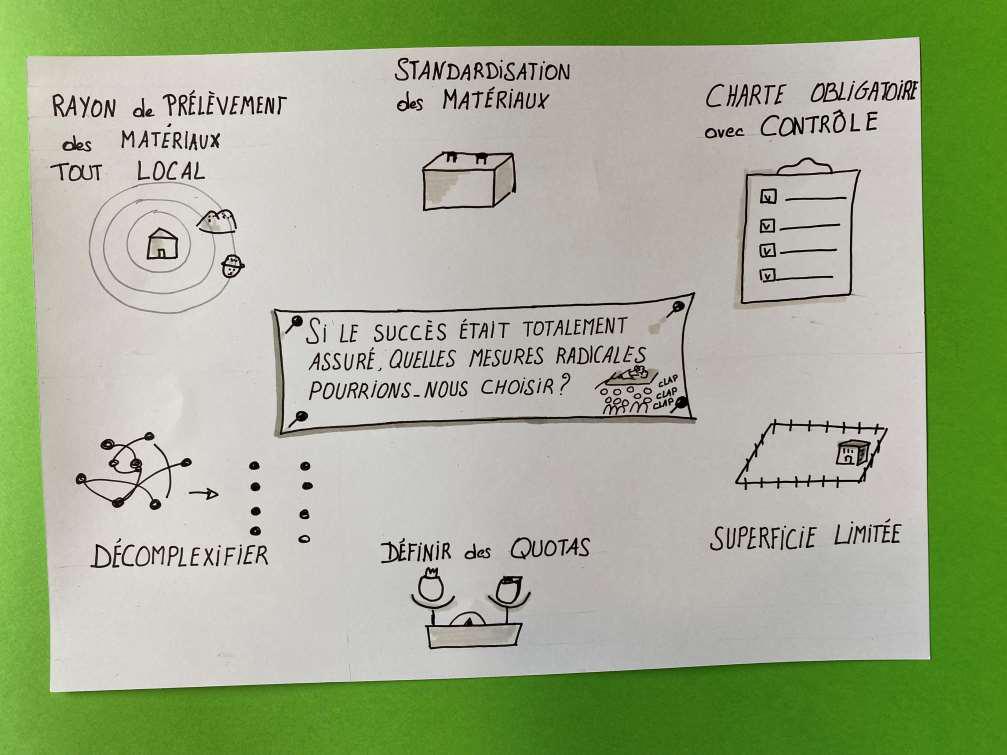 RAYON de PRÉLÈVEMENT
des MATÉRIAUX
TOUT LOCAL
STANDARDISATION
des MATÉRIAUX
CHARTE OBLIGATOIRE
avec CONTRÔLE
SI LE SUCCÈS ÉTAIT TOTALEMENT
ASSURÉ, QUELLES MESURES RADICALES
POURRIONS-NOUS CHOISIR ?
CLAP
CLAP
CLAP
DÉCOMPLEXIFIER
DÉFINIR des QUOTAS
SUPERFICIE LIMITÉE